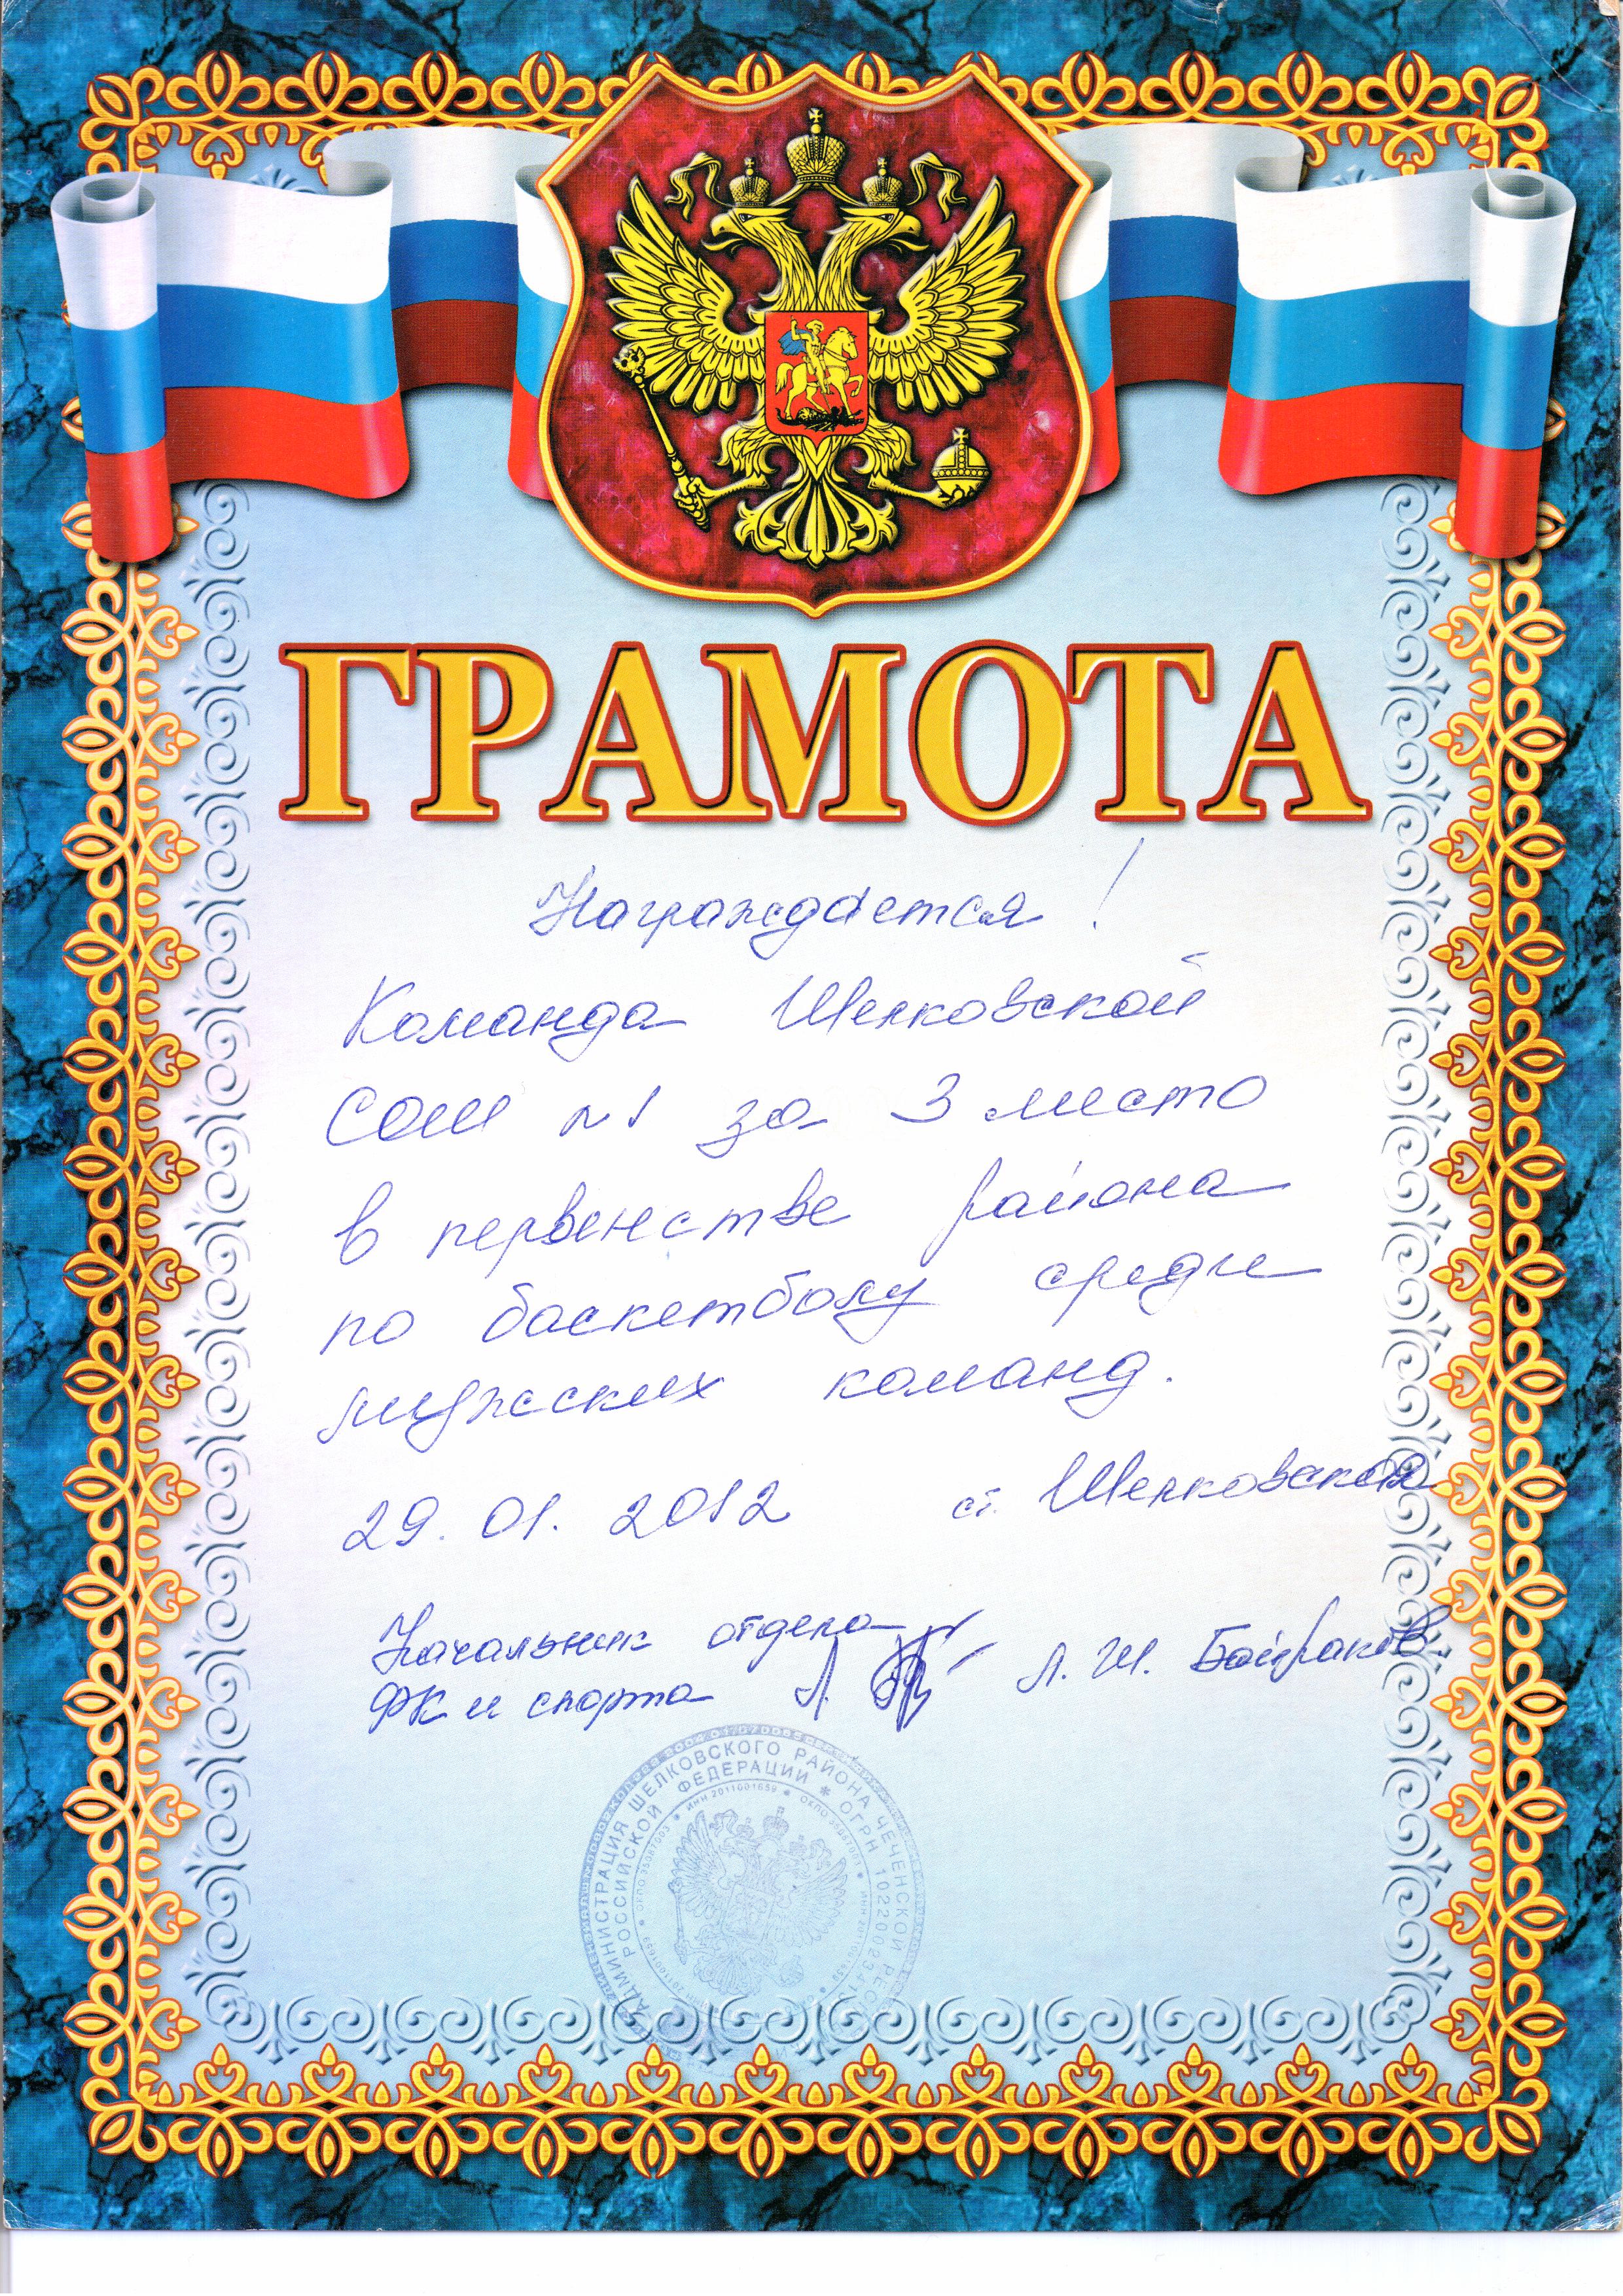 ГРАМОТА
Награждается !
Команда Шелковской
СОШ №1 за 3 место
в первенстве района
по баскетболу среди
мужских команд.
29. 01. 2012 ст. Шелковская
Начальник отдела
ФК и спорта Л. Ш. Байраков
АДМИНИСТРАЦИЯ ШЕЛКОВСКОГО РАЙОНА ЧЕЧЕНСКОЙ
РОССИЙСКОЙ ФЕДЕРАЦИИ * ОГРН
ИНН 2011001659 * ОКПО